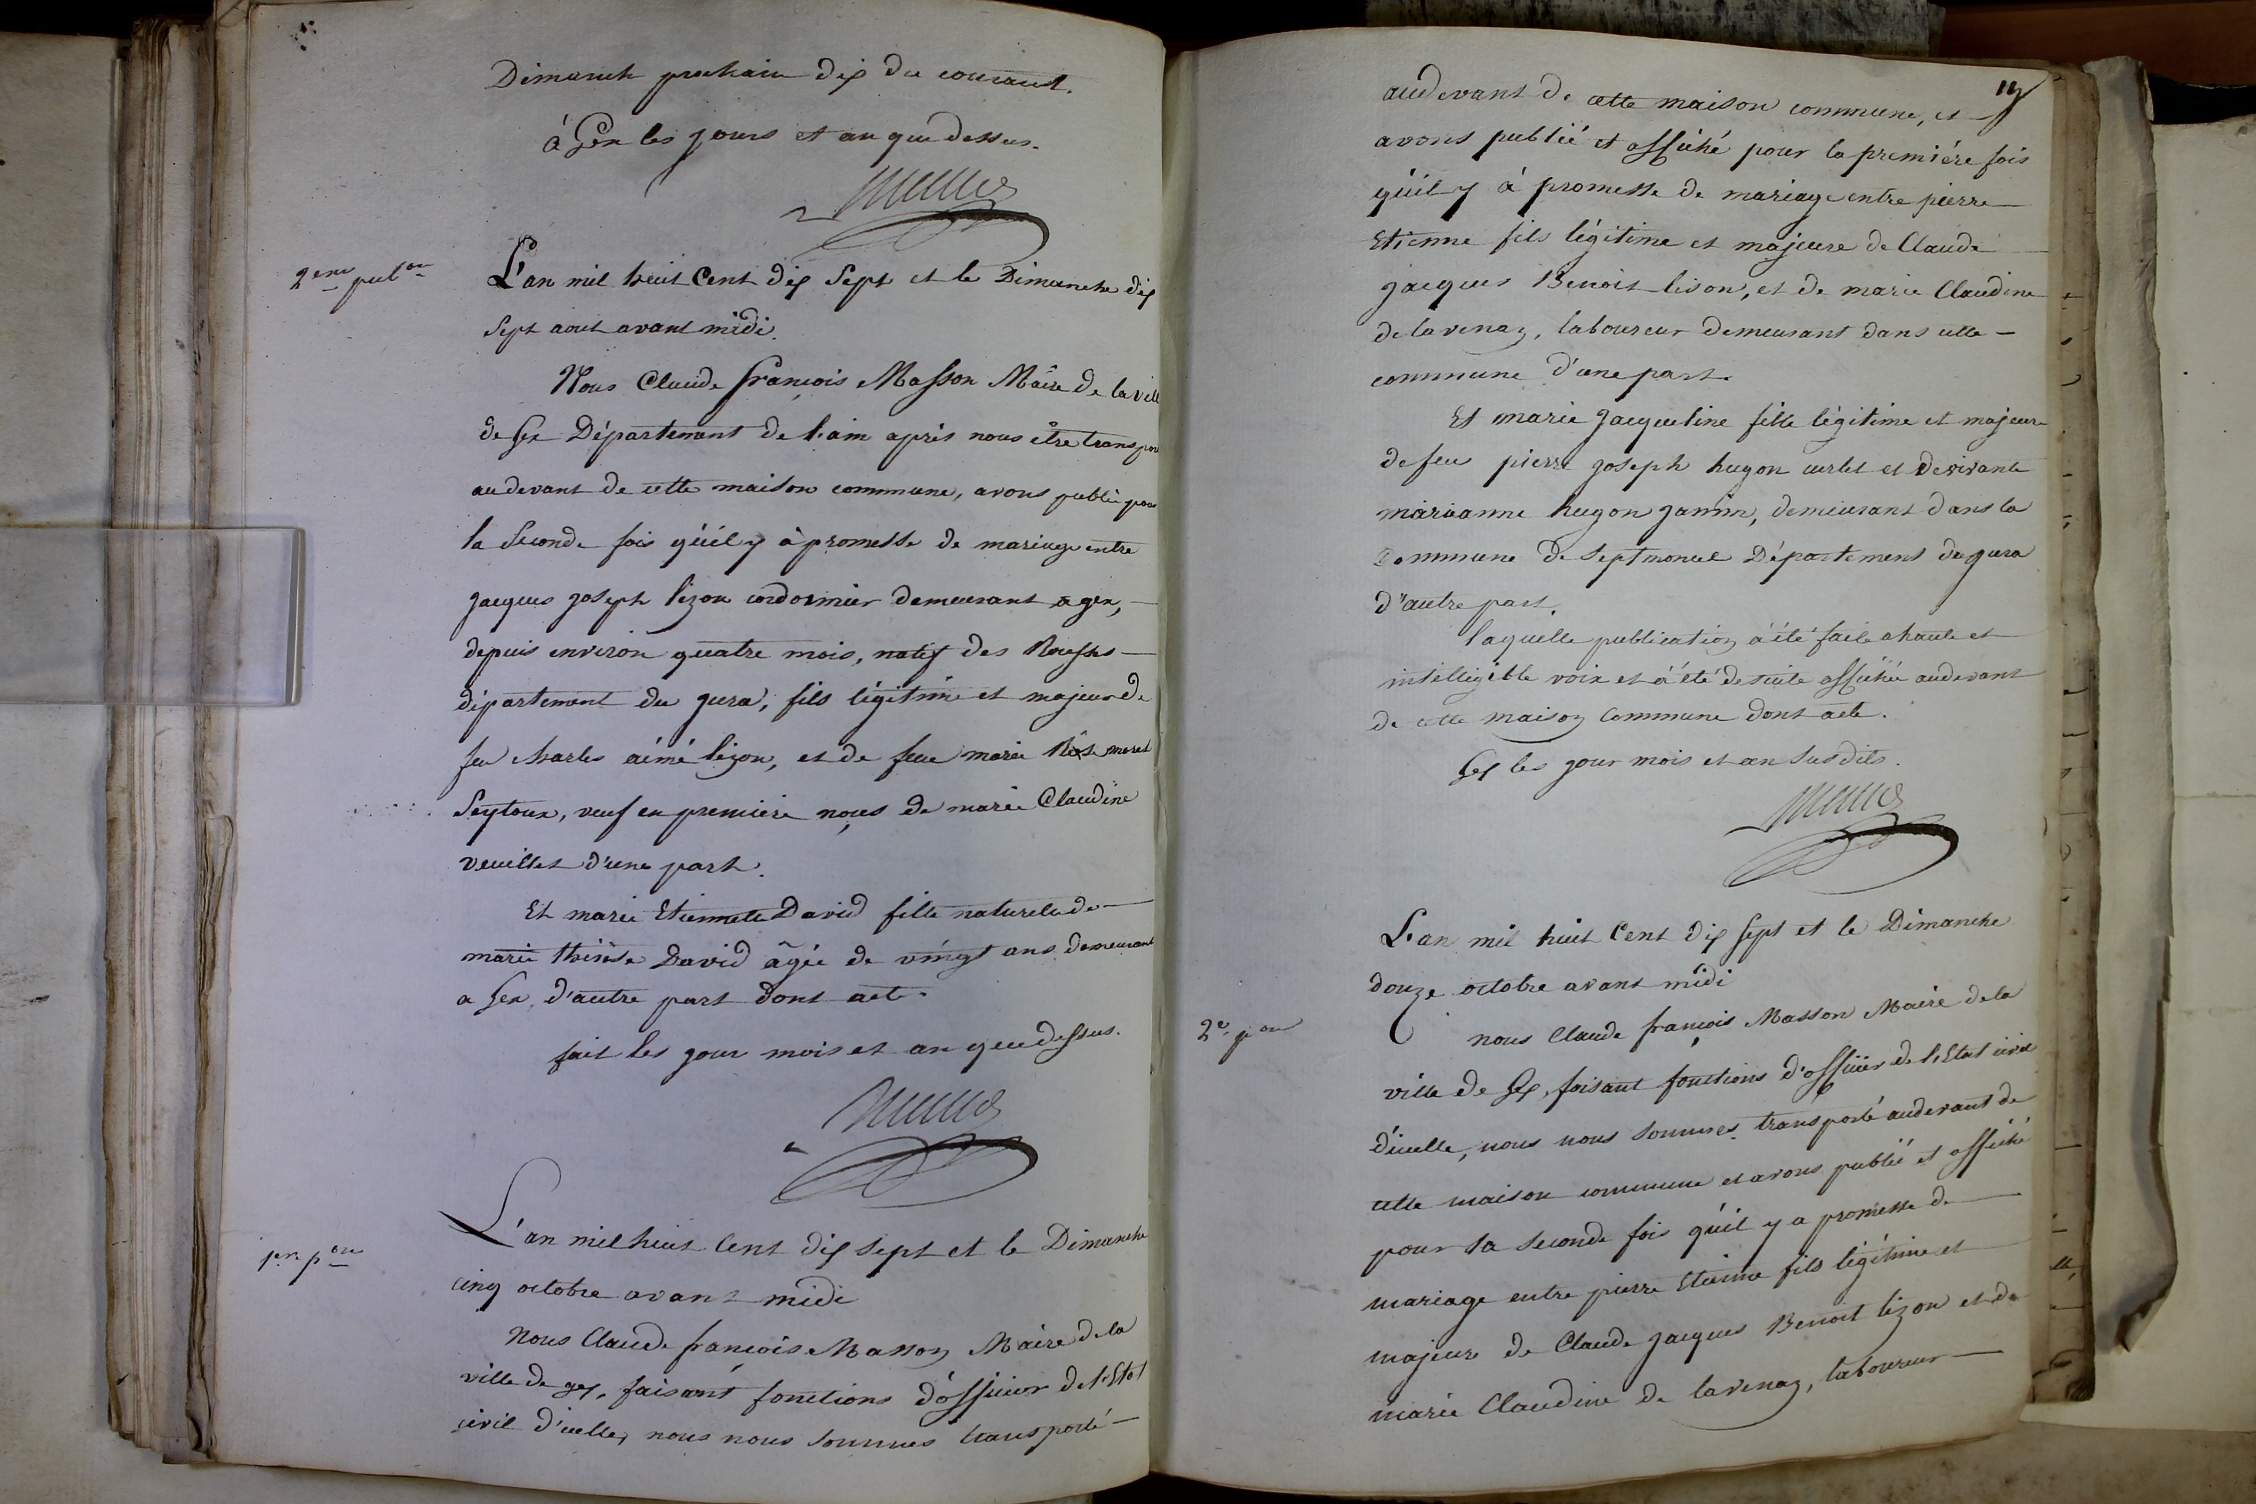 Dimanch prochain dix du courant.
à Gex les jours et an que dessus.
2eme pubon
L'an mil huit Cent dix Sept et le Dimanche dix
Sept aout avant midi.
Nous Claude françois Masson Maire de la vill
de Gex Département de l'ain après nous être transpor
au devant de cette maison commune, avons publié pour
la Seconde fois qu'il y à promesse de mariage entre
jacques joseph lizon cordonnier demeurant a gex, —
depuis environ quatre mois, natif des Rousses —
département du jura, fils légitime et majeur de
feu charles aimé lizon, et de feue marie Rose moret
Seytoux, veuf en premiere noçes de marie Claudine
veuillet d'une part.
Et marie Etiennette David fille naturele de —
marie thérèse David âgée de vingt ans demeurant
a Gex, d'autre part dont acte.
fait les jour mois et an que dessus.
1ere pon
L'an mil huit Cent dix sept et le Dimanche
cinq octobre avant midi
Nous Claude françois Masson Maire de la
ville de gex, faisant fonctions d'officier de l'Etat
civil d'icelle, nous nous sommes transporté —
audevant de cette maison commune, et —
avons publié et affiché pour la premiére fois
qu'il y à promesse de mariage entre pierre —
Etienne fils légitime et majeure de Claude —
jacques Benoit lison, et de marie Claudine
de lavenaz, laboureur demeurant dans cette —
commune d'une part.
Et marie jacqueline fille légitime et majeure
de feu pierre joseph hugon curlet et de vivante
mariaanne hugon janin, demeurant dans la
Commune de Septmoncel Département du jura
d'autre part.
laquelle publication à été faite a haute et
intelligible voix et à été de suite affichée audevant
de cette maison Commune dont acte.
Gex les jour mois et an susdits.
L'an mil huit Cent dix Sept et le Dimanche
douze octobre avant midi
2e pon
nous Claude françois Masson Maire de la
ville de Gex, faisant fonctions d'officier de l'Etat civil
d'icelle, nous nous sommes transporté audevant de
cette maison commune et avons publié et affiché
pour la seconde fois qu'il y a promesse de —
mariage entre pierre Etienne fils légitime et —
majeur de Claude jacques Benoit lizon et de
marie Claudine de lavenaz, laboureur —